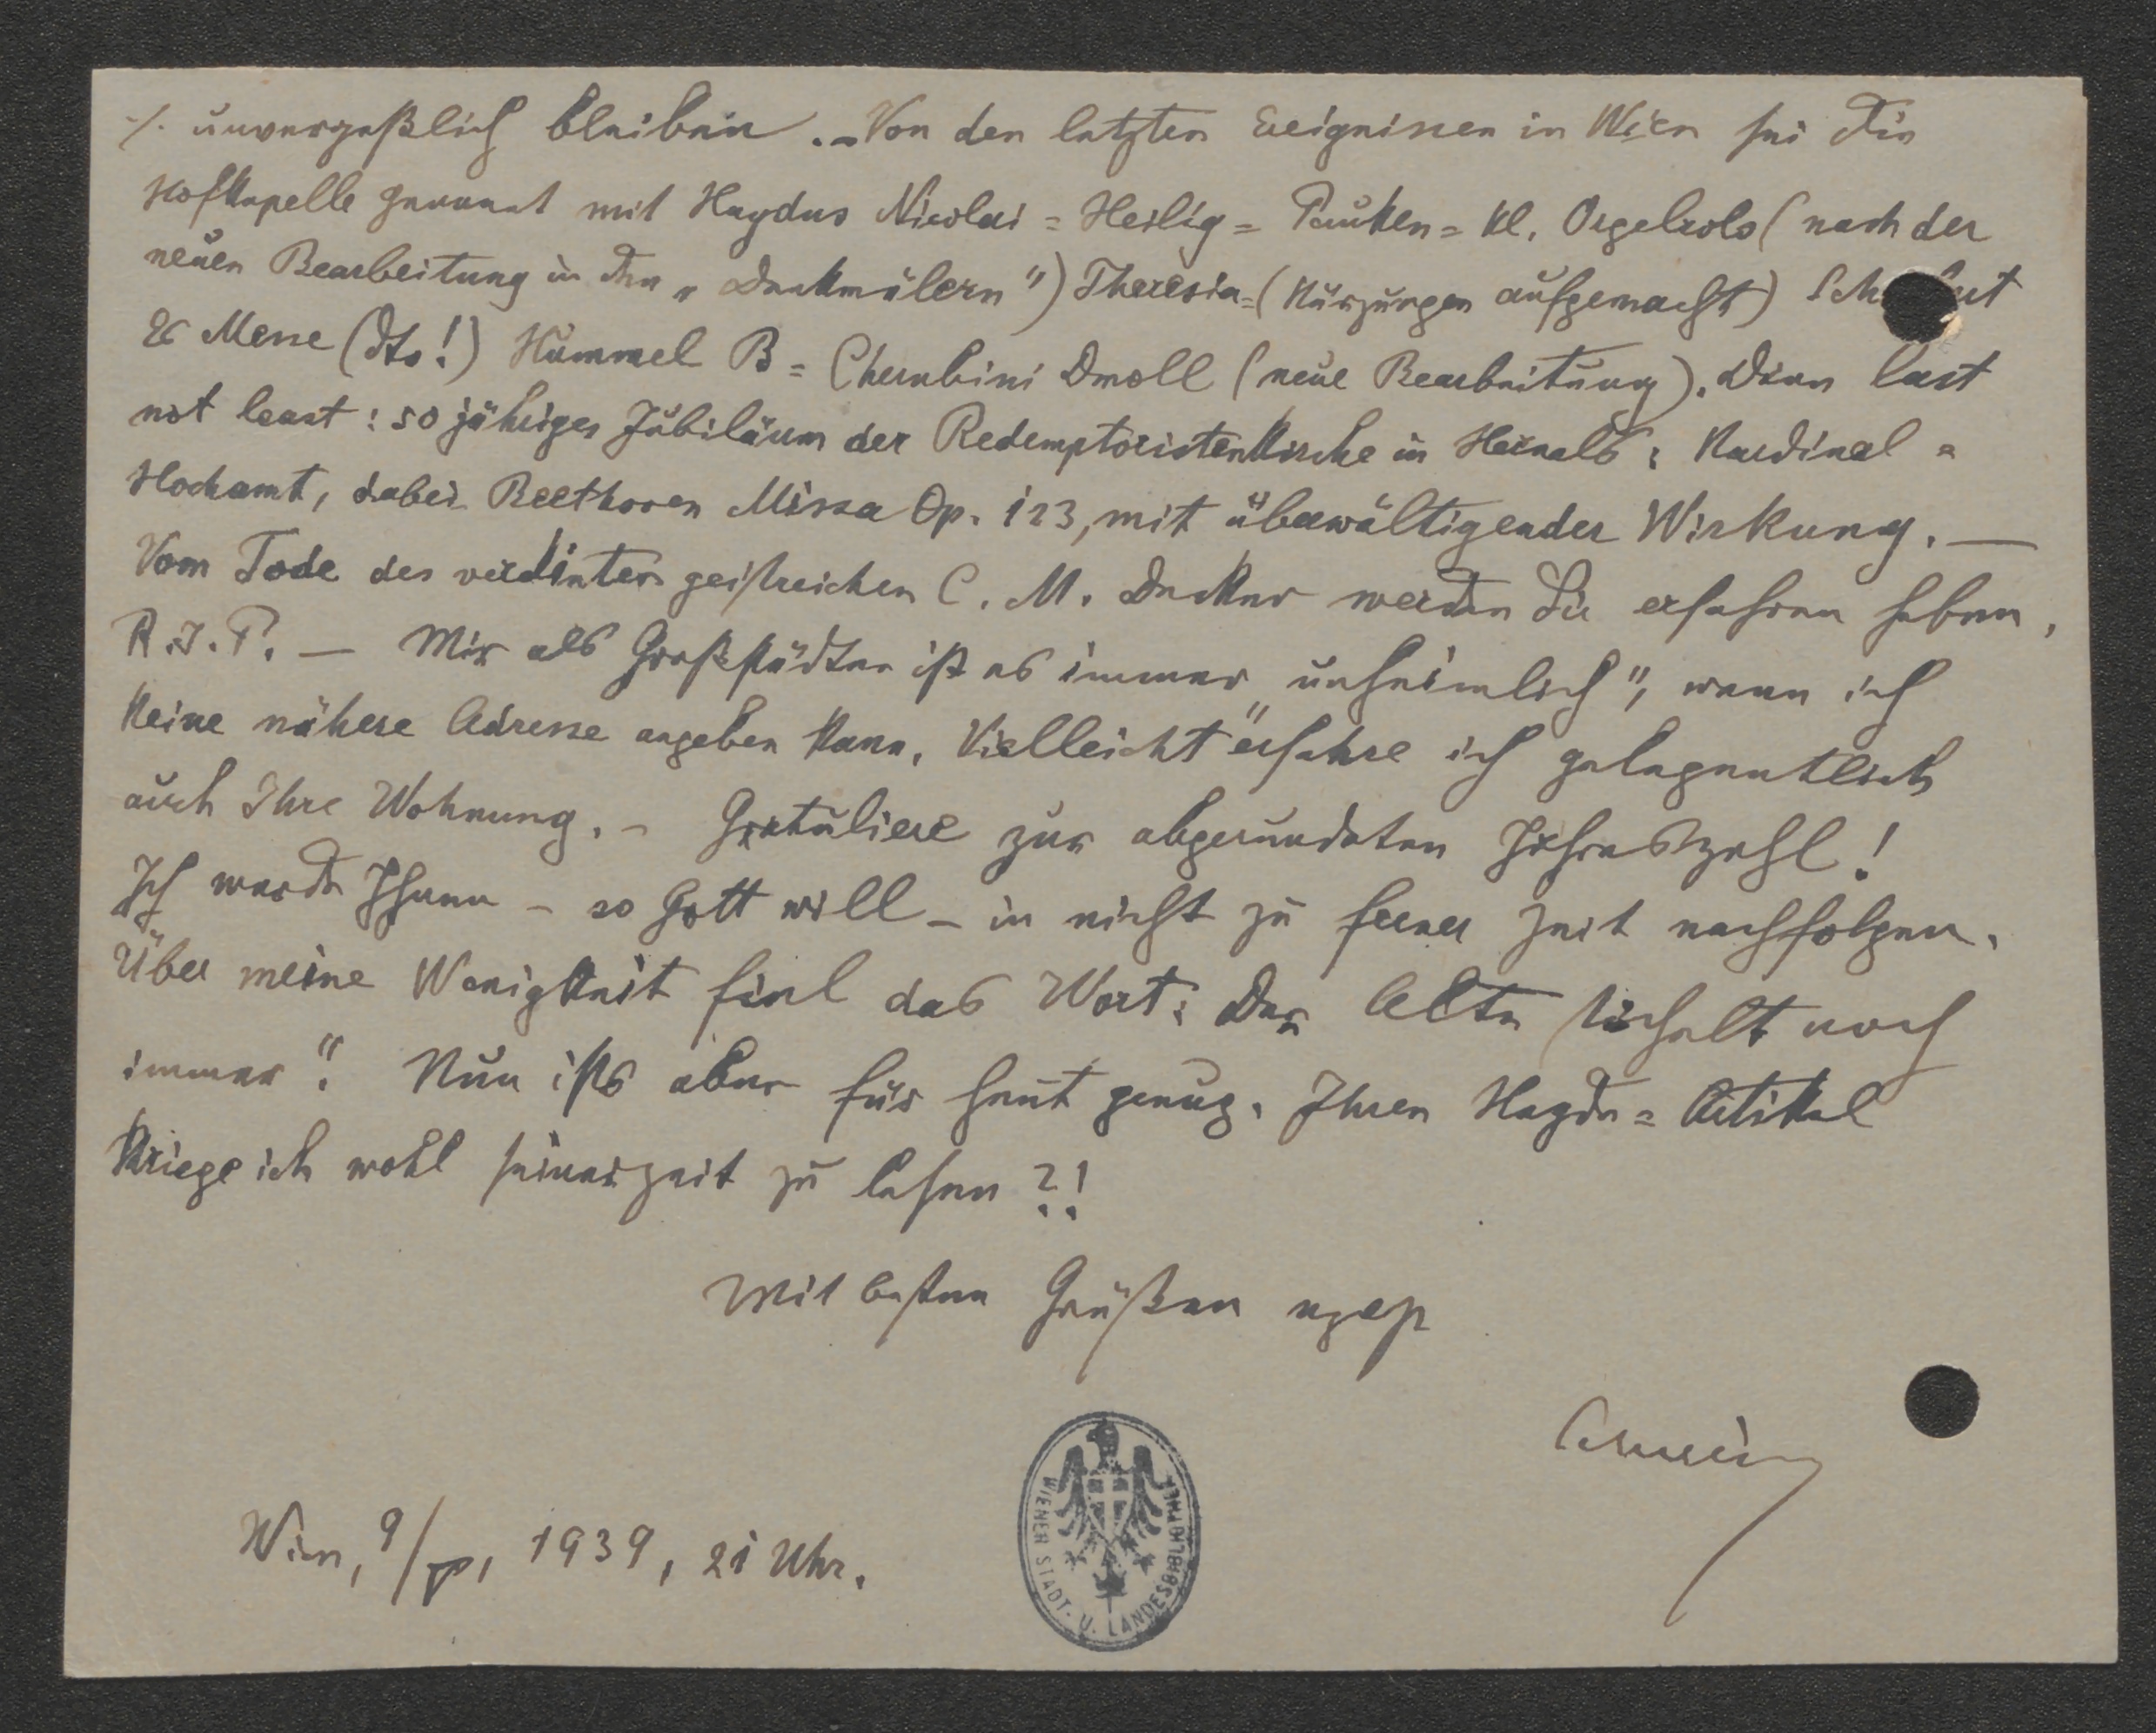 ./. unvergeßlich bleiben. – Von den letzten Ereignissen in Wien sei die
Hofkapelle genannt mit Haydns Nicolai = Heilig = Pauken = kl. Orgelsolo (nach der
neuen Bearbeitung in den „Denkmälern") Theresia = (Kürzungen aufgemacht) Sch
Es Messe (dto!) Hummel B = Cherubini Dmoll (neue Bearbeitung). Dann last
not least: 50 jähriges Jubiläum der Redemptoristenkirche in Hernals: Kardinal =
Hochamt, dabei Beethoven Missa Op. 123, mit überwältigender Wirkung. —
Vom Tode des verdinten geistreichen C. M. werden Sie erfahren haben.
R. I. P. — Mir als Großstädter ist es immer „unheimlich", wenn ich
keine nähere Adresse angeben kann. Vielleicht erfahre ich gelegentlich
auch Ihre Wohnung. – Gratuliere zur abgerundeten Jahreszahl!
Ich werde Ihnen – so Gott will – in nicht zu ferner Zeit nachfolgen.
Über meine Wenigkeit fiel das Wort: Der Alte lächelt noch
immer". Nun ists aber für heut genug. Ihren Haydn = Artikel
kriege ich wohl seinerzeit zu lesen?!
Mit besten Grüßen
Wien, 9/ 1939, 21 Uhr.
WIENER STADT- U. LANDESBIBLIOTHEK